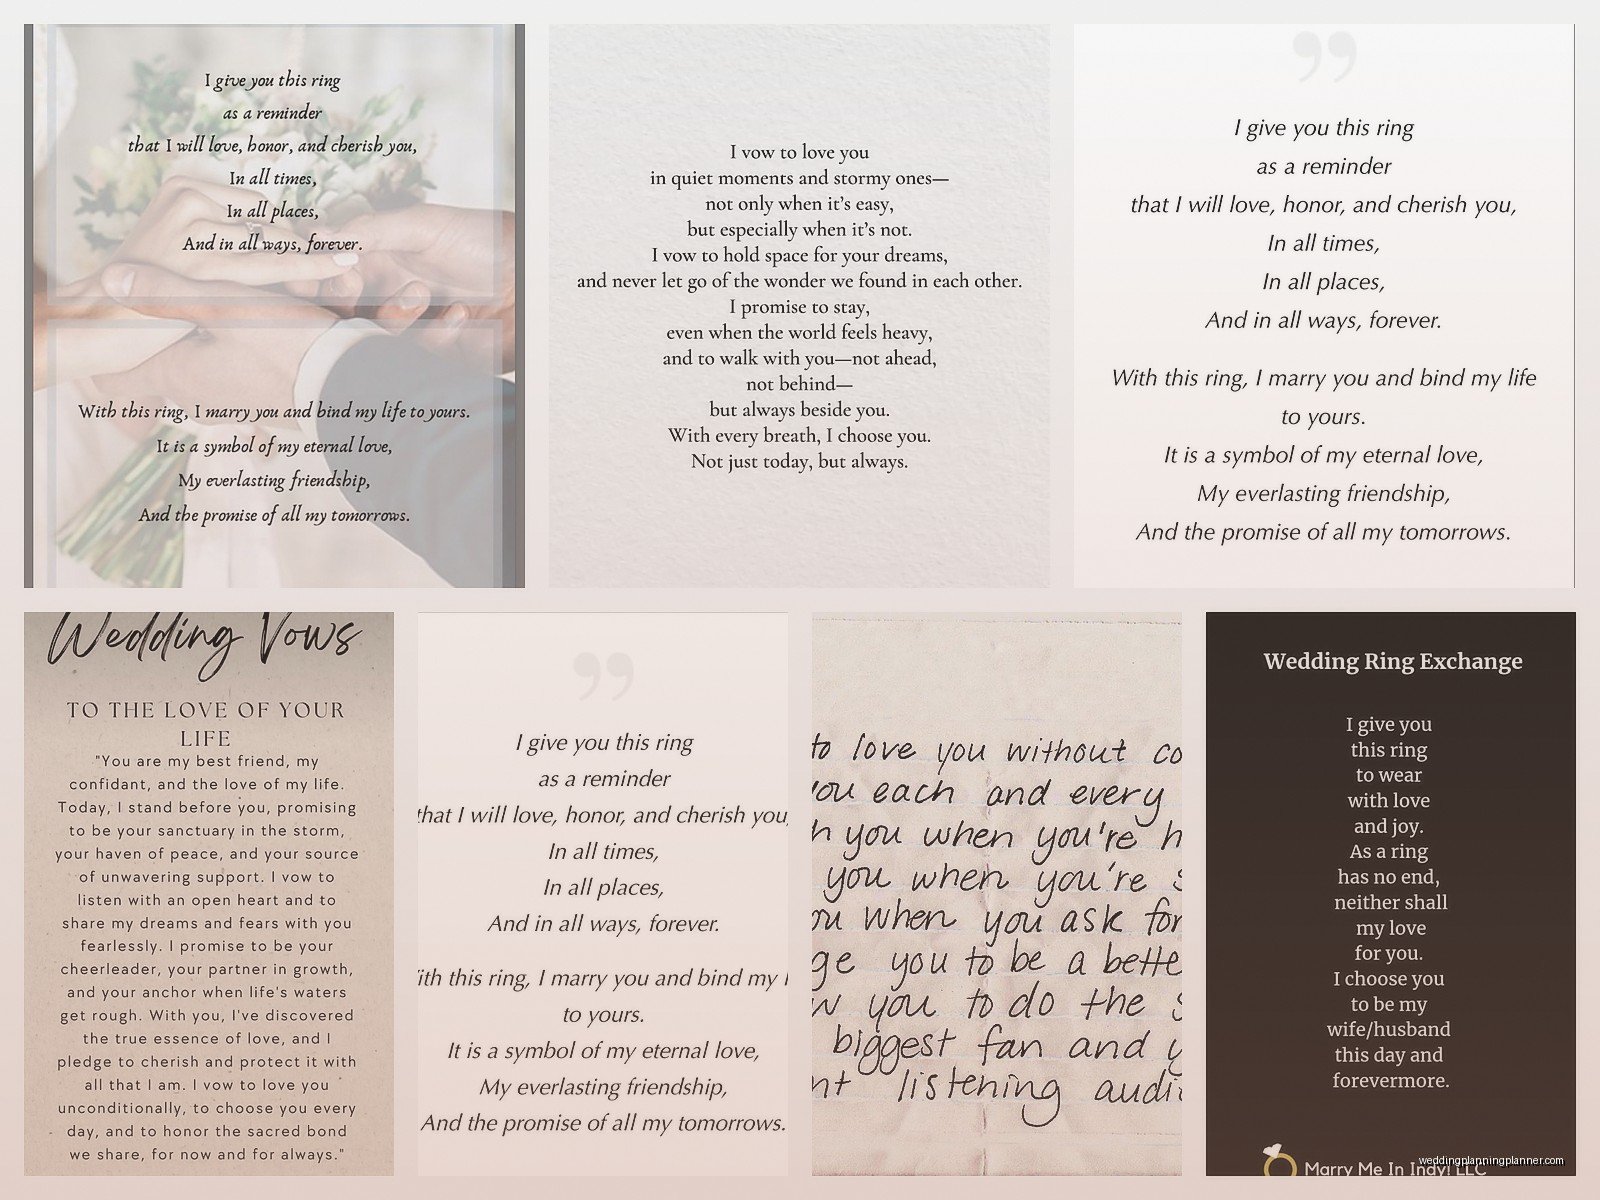 I give you this ring
as a reminder
that I will love, honor, and cherish you,
In all times,
In all places,
And in all ways, forever.
With this ring, I marry you and bind my life to yours.
It is a symbol of my eternal love,
My everlasting friendship,
And the promise of all my tomorrows.
I vow to love you
in quiet moments and stormy ones—
not only when it's easy,
but especially when it's not.
I vow to hold space for your dreams,
and never let go of the wonder we found in each other.
I promise to stay,
even when the world feels heavy,
and to walk with you—not ahead,
not behind—
but always beside you.
With every breath, I choose you.
Not just today, but always.
”
I give you this ring
as a reminder
that I will love, honor, and cherish you,
In all times,
In all places,
And in all ways, forever.
With this ring, I marry you and bind my life
to yours.
It is a symbol of my eternal love,
My everlasting friendship,
And the promise of all my tomorrows.
Wedding Vows
TO THE LOVE OF YOUR
LIFE
"You are my best friend, my
confidant, and the love of my life.
Today, I stand before you, promising
to be your sanctuary in the storm,
your haven of peace, and your source
of unwavering support. I vow to
listen with an open heart and to
share my dreams and fears with you
fearlessly. I promise to be your
cheerleader, your partner in growth,
and your anchor when life's waters
get rough. With you, I've discovered
the true essence of love, and I
pledge to cherish and protect it with
all that I am. I vow to love you
unconditionally, to choose you every
day, and to honor the sacred bond
we share, for now and for always."
”
I give you this ring
as a reminder
that I will love, honor, and cherish you,
In all times,
In all places,
And in all ways, forever.
ith this ring, I marry you and bind my
to yours.
It is a symbol of my eternal love,
My everlasting friendship,
And the promise of all my tomorrows.
to love you without co
you each and every
h you when you're h
you when you're
ou when you ask for
ge you to be a bette
w you to do the
biggest fan and y
nt listening audi
Wedding Ring Exchange
I give you
this ring
to wear
with love
and joy.
As a ring
has no end,
neither shall
my love
for you.
I choose you
to be my
wife/husband
this day and
forevermore.
Marry Me In Indy! LLC
weddingplanningplanner.com